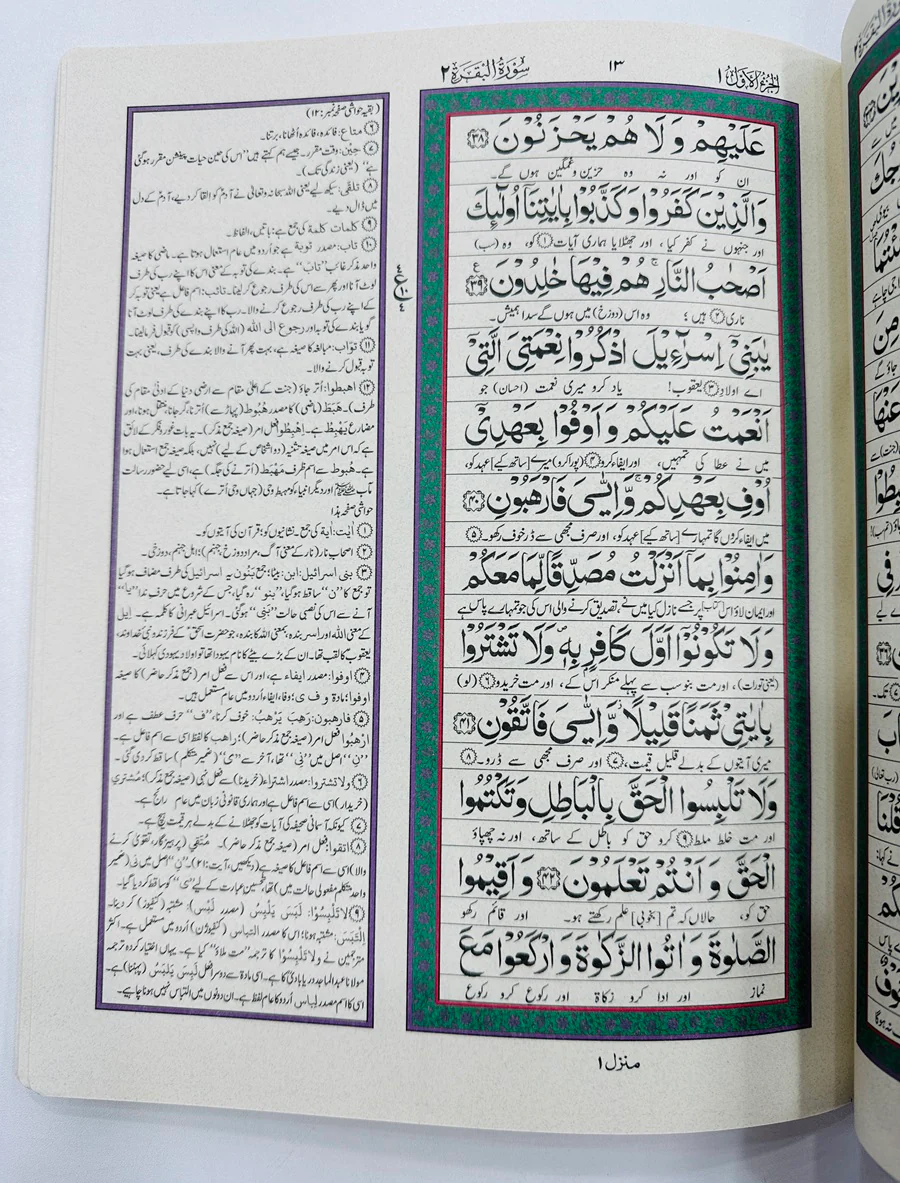 الجزء الاول ١
١٣
سورة البقرة ٢
عَلَيْهِمْ وَ لَا هُمْ يَحْزَنُوْنَ ﴿٣٨﴾
ان کو اور نہ وہ حزین و غمگین ہوں گے۔
وَالَّذِيْنَ كَفَرُوْا وَكَذَّبُوْا بِاٰيٰتِنَاۤ اُولٰٓئِكَ
اور جنہوں نے کفر کیا، اور جھٹلایا ہماری آیات ① کو، وہ (سب)
اَصْحٰبُ النَّارِ ۚ هُمْ فِيْهَا خٰلِدُوْنَ ﴿٣٩﴾
ناری ② ہیں؛ وہ اس (دوزخ) میں ہوں گے سدا ہمیش۔
يٰبَنِيْۤ اِسْرَآءِيْلَ اذْكُرُوْا نِعْمَتِيَ الَّتِيْۤ
اے اولادِ ③ یعقوب! یاد کرو میری نعمت (احسان) جو
اَنْعَمْتُ عَلَيْكُمْ وَ اَوْفُوْا بِعَهْدِيْۤ
میں نے عطا کی تمہیں، اور ایفاء کرو ④ (پورا کرو) میرے [ساتھ کیے] عہد کو،
اُوْفِ بِعَهْدِكُمْ ۚ وَ اِيَّايَ فَارْهَبُوْنِ ﴿٤٠﴾
میں ایفاء کروں گا تمہارے [ساتھ کیے] عہد کو، اور صرف مجھی سے ڈر خوف رکھو۔ ⑤
وَ اٰمِنُوْا بِمَاۤ اَنْزَلْتُ مُصَدِّقًا لِّمَا مَعَكُمْ
اور ایمان لاؤ اس کتاب پر جسے نازل کیا میں نے، تصدیق کرنے والی اس کی جو تمہارے پاس ہے
وَلَا تَكُوْنُوْۤا اَوَّلَ كَافِرٍۭ بِهٖ ۪ وَلَا تَشْتَرُوْا
(یعنی تورات)، اور مت بنو سب سے پہلے منکر اس کے، اور مت خریدو ⑥ (لو)
بِاٰيٰتِيْ ثَمَنًا قَلِيْلًا ۫ وَّ اِيَّايَ فَاتَّقُوْنِ ﴿٤١﴾
میری آیتوں کے بدلے قلیل قیمت، ⑦ اور صرف مجھی سے ڈرو۔ ⑧
وَلَا تَلْبِسُوا الْحَقَّ بِالْبَاطِلِ وَ تَكْتُمُوا
اور مت خلط ملط ⑨ کرو حق کو باطل کے ساتھ، اور نہ چھپاؤ
الْحَقَّ وَ اَنْتُمْ تَعْلَمُوْنَ ﴿٤٢﴾ وَ اَقِيْمُوا
حق کو، حالاں کہ تم [بخوبی] علم رکھتے ہو۔ اور قائم رکھو
الصَّلٰوةَ وَ اٰتُوا الزَّكٰوةَ وَ ارْكَعُوْا مَعَ
نماز اور ادا کرو زکاۃ اور رکوع کرو رکوع
منزل ١
(بقیہ حواشی صفحہ نمبر: ۱۲)
⑥ متاع: فائدہ، فائدہ اُٹھانا، برتنا۔
⑦ حِیْن: وقت مقرر۔ جیسے ہم کہتے ہیں "اس کی حین حیات پینشن مقرر ہوگئی
ہے" (یعنی زندگی تک)۔
⑧ تلقّٰی: سیکھ لیے یعنی اللہ سبحانہ وتعالیٰ نے آدمؑ کو القا کر دیے، آدمؑ کے دل
میں ڈال دیے۔
⑨ کلمات کلمة کی جمع ہے: باتیں، الفاظ۔
⑩ تاب: مصدر توبة ہے جو اُردو میں عام استعمال ہوتا ہے۔ ماضی کا صیغہ
واحد مذکر غائب "تابَ" ہے۔ بندے کی توبہ کے معنی اس کا اپنے رب کی طرف
لوٹ آنا اور پھر سے اس کی طرف رجوع کر لینا۔ تائب: اسم فاعل ہے یعنی توبہ کر
کے اپنے رب کی طرف رجوع کرنے والا۔ رب کا اپنے بندے کی طرف لوٹ آنا
گویا بندے کی توبہ اور رجوع الی اللہ (اللہ کی طرف واپسی) کو قبول فرمالینا۔
⑪ تواب: مبالغہ کا صیغہ ہے، بہت پھر آنے والا بندے کی طرف، یعنی بہت
توبہ قبول کرنے والا۔
⑫ اهبطوا: اُتر جاؤ (جنت کے اعلیٰ مقام سے ارضی دنیا کے ادنیٰ مقام کی
طرف)۔ هَبَطَ (ماضی) کا مصدر هُبُوط (پہاڑ سے) اُترنا، گر جانا، منتقل ہونا، اور
مضارع یَهْبِطُ ہے۔ اِهْبِطُوا فعل امر (صیغہ جمع مذکر)۔ یہ بات غور و فکر کے لائق
ہے کہ اس امر میں صیغہ تثنیہ (دو اشخاص کے لیے) نہیں، بلکہ صیغہ جمع استعمال ہوا
ہے۔ هُبوط سے اسم ظرف مَهْبَط (اُترنے کی جگہ) ہے، اسی لیے حضور رسالت
مآب ﷺ اور دیگر انبیاء کو مہبطِ وحی (جہاں وحی اُترے) کہا جاتا ہے۔
حواشی صفحہ ہذا
① اٰیٰت: اٰیة کی جمع۔ نشانیوں کو؛ قرآن کی آیتوں کو۔
② اصحاب نار (نار کے معنی آگ، مراد دوزخ، جہنم)؛ اہل جہنم، دوزخی۔
③ بنی اسرائیل: ابن: بیٹا؛ جمع بَنُون یہ اسرائیل کی طرف مضاف ہوگیا
تو جمع کا "ن" ساقط ہوگیا، "بنو" رہ گیا، جس کے شروع میں حرف ندا "یا"
آنے سے اس کی نصبی حالت "بَنِی" ہوگئی۔ اسرائیل عبرانی کا کلمہ ہے۔ اِیل
کے معنی اللہ اور اسر بندہ، بمعنی اللہ کا بندہ، جو حضرت اسحٰق کے فرزند و نبی خداوند،
یعقوب کا لقب تھا۔ ان کے بڑے بیٹے کا نام یہودا تھا تو اولاد یہودی کہلائی۔
④ اوفوا: مصدر ایفاء ہے، اور اس سے فعل امر (جمع مذکر حاضر) کا صیغہ
اوفوا؛ مادہ و ف ی؛ وفا، ایفاء اُردو میں عام مستعمل ہیں۔
⑤ فارهبون: رَهِبَ یَرْهَبُ: خوف کرنا، "فَ" حرف عطف ہے اور
ارْهَبُوا فعل امر (صیغہ جمع مذکر حاضر)؛ راهب کا لفظ اسی سے اسم فاعل ہے۔
"نِ" اصل میں "نِی" تھا، آخر سے "ی" (ضمیر متکلم) ساقط کر دی گئی۔
⑥ ولا تشتروا: مصدر اشتراء (خریدنا) سے فعل نہی (صیغہ جمع مذکر)؛ مُشتری
(خریدار) اسی سے اسم فاعل ہے اور ہماری قانونی زبان میں عام رائج ہے۔
⑦ کیونکہ آسمانی صحیفہ کی آیات کو جھٹلانے کے بدلے ہر قیمت ہیچ ہے۔
⑧ اتقوا: فعل امر (صیغہ جمع مذکر حاضر)۔ مُتّقِی (پرہیزگار، تقویٰ کرنے
والا) اسی سے اسم فاعل کا صیغہ ہے (دیکھیں، آیت: ۲۱)۔ "نِ" اصل میں نی (ضمیر
واحد متکلم مفعولی حالت میں) تھا، تحسین عبارت کے لیے "ی" کو ساقط کر دیا گیا۔
⑨ لا تَلْبِسُوْا: لَبَسَ یَلْبِسُ (مصدر لَبْس): مشتبہ (کنفیوز) کر دینا۔
اِلْتَبَسَ: مشتبہ ہونا؛ اس کا مصدر التباس (کنفیوژن) اُردو میں مستعمل ہے۔ اکثر
مترجمین نے ولا تَلْبِسُوا کا ترجمہ "مت ملاؤ" کیا ہے۔ یہاں اختیار کردہ ترجمہ
مولانا عبدالماجد دریابادی کا ہے۔ اسی مادہ سے دوسرا فعل لَبِسَ یَلْبَسُ (پہننا) ہے۔
اسی کا اسم مصدر لباس اُردو کا عام لفظ ہے۔ ان دونوں میں التباس نہیں ہونا چاہیے۔